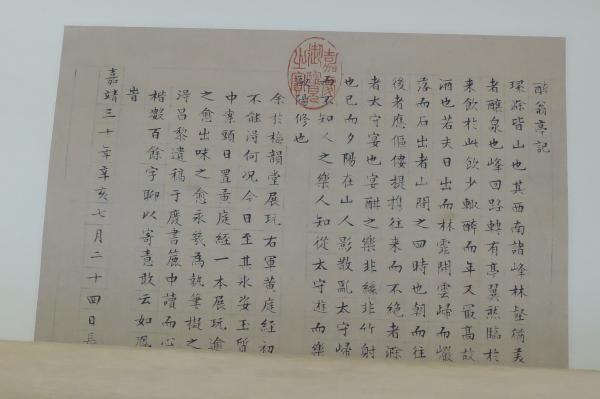 醉翁亭記
環滁皆山也其西南諸峰林壑美
者釀泉也峰回路轉有亭翼然臨於
來飲於此飲少輒醉而年又最高故
酒也若夫日出而林霏開雲歸而巖
落而石出者山間之四時也朝而往
後者應傴僂提攜往來而不絕者滁
者太守宴也宴酣之樂非絲非竹射
也已而夕陽在山人影散亂太守歸
而不知人之樂人知從太守遊而樂
歐陽修也
余於梅韻堂展玩右軍黃庭經初
不能得何況今日至其水姿玉質
中案頭日置黃庭經一本展玩逾
之愈出味之愈永為執筆擬之
淂昌黎遺稿于廢書簏中讀而心
楷數百餘字聊以寄意敢云如鳳
嘉靖三十年辛亥七月二十四日長
嘉慶御覽之寶